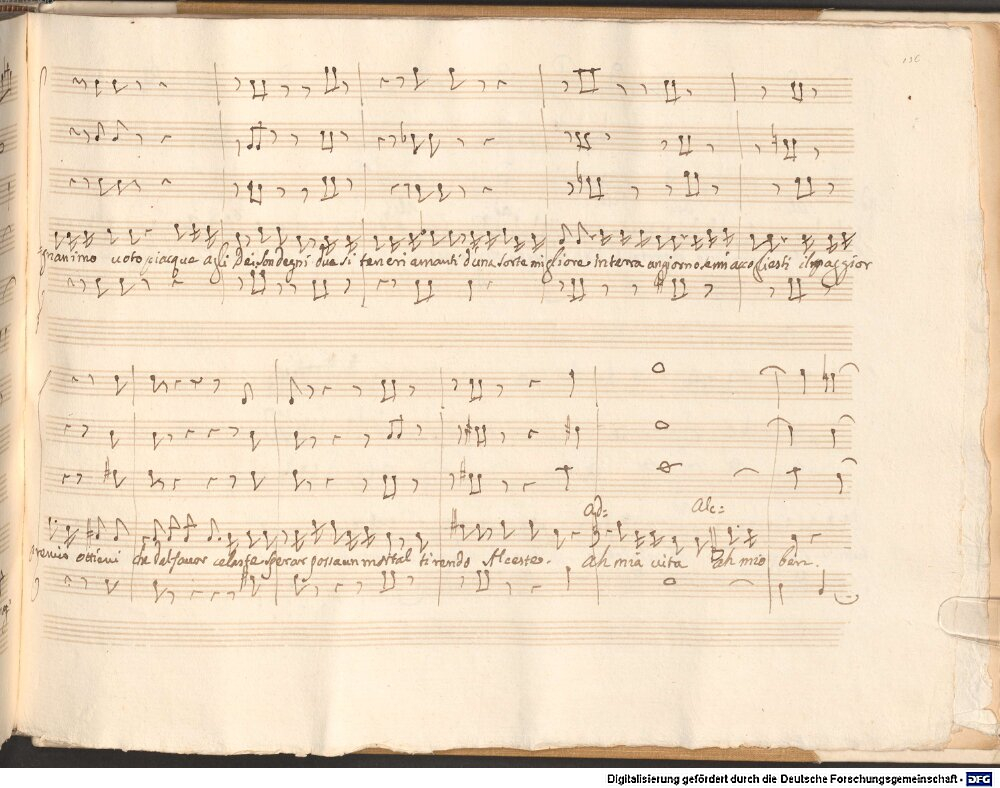 136
gnanimo voto piacque agli Dei, son degni due si teneri amanti d'una sorte migliore. In terra un giorno se mi accogliesti il maggior
Ad: Alc:
premio ottieni che del favor celeste sperar possa un mortal ti rendo Alceste. ah mia vita ah mio ben.
Digitalisierung gefördert durch die Deutsche Forschungsgemeinschaft - DFG